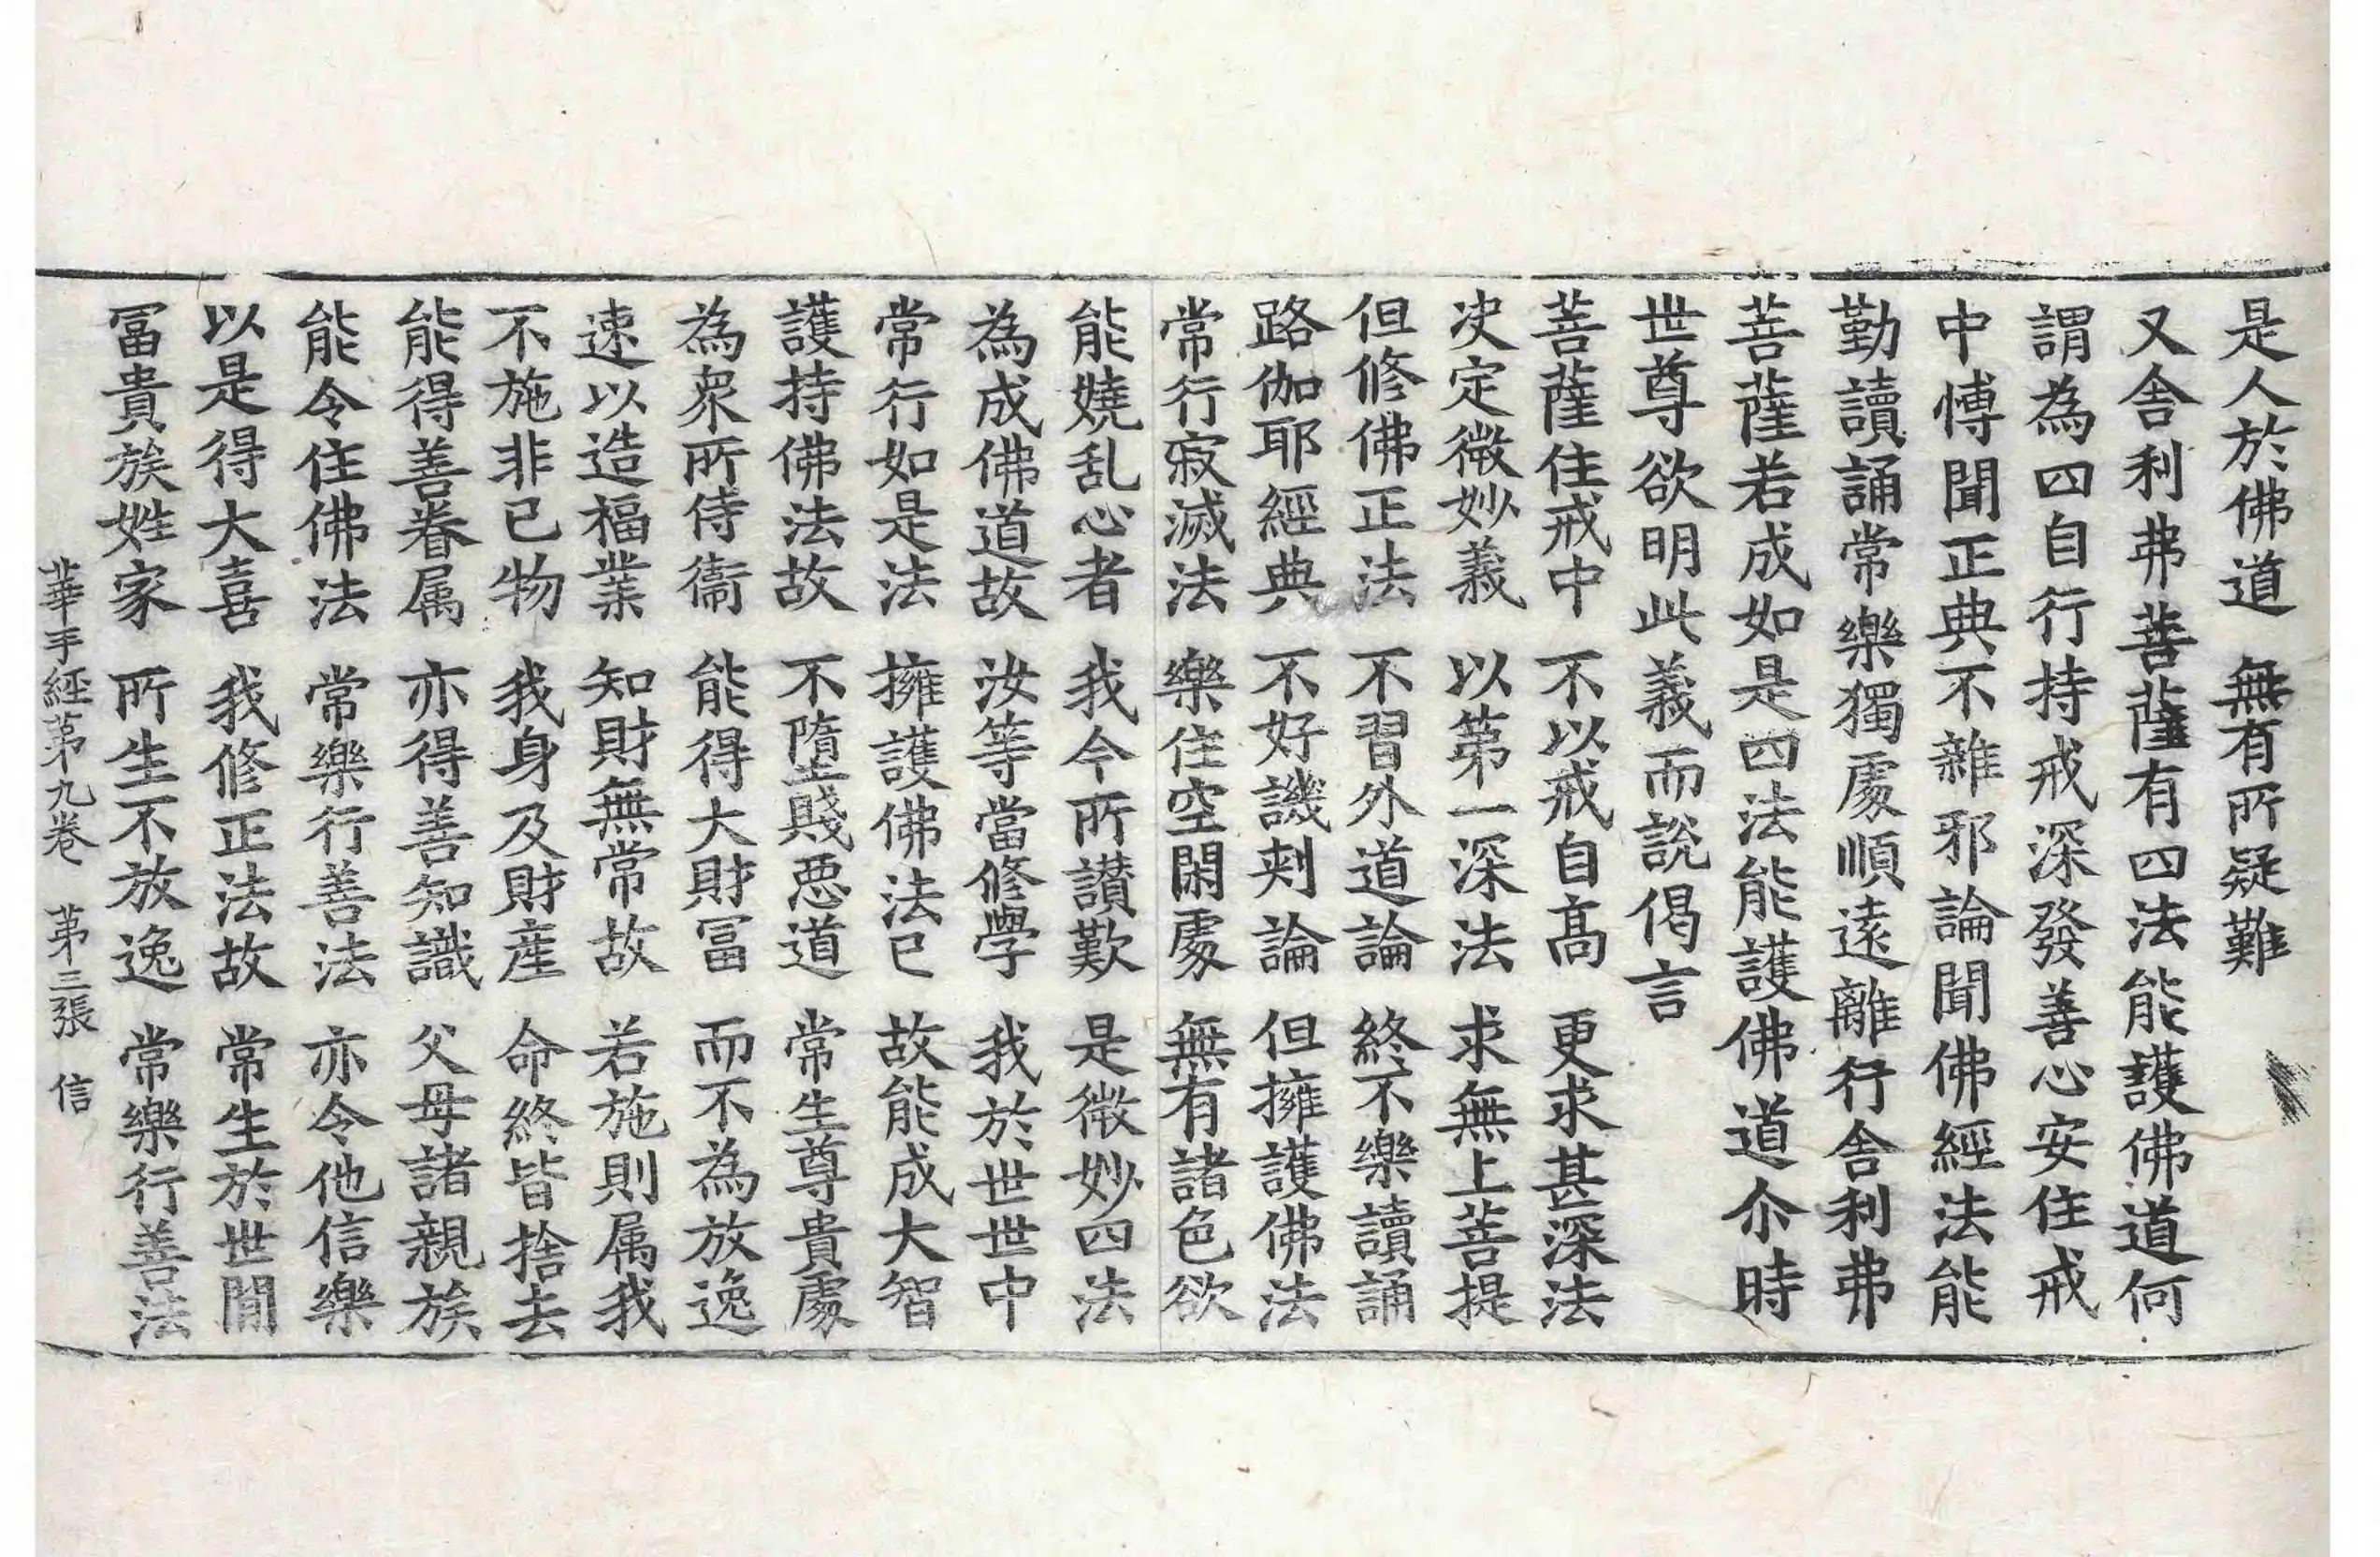 是人於佛道　無有所疑難
又舍利弗菩薩有四法能護佛道何
謂為四自行持戒深發善心安住戒
中愽聞正典不雜邪論聞佛經法能
勤讀誦常樂獨處順遠離行舍利弗
菩薩若成如是四法能護佛道尒時
世尊欲明此義而說偈言
菩薩住戒中　不以戒自高　更求甚深法
决定微妙義　以第一深法　求無上菩提
但修佛正法　不習外道論　終不樂讀誦
路伽耶經典　不好譏刾論　但擁護佛法
常行寂滅法　樂住空閑處　無有諸色欲
能嬈乱心者　我今所讃歎　是微妙四法
為成佛道故　汝等當修學　我於世世中
常行如是法　擁護佛法已　故能成大智
護持佛法故　不墮賤惡道　常生尊貴處
為衆所侍衛　能得大財冨　而不為放逸
速以造福業　知財無常故　若施則属我
不施非已物　我身及財産　命終皆捨去
能得善眷属　亦得善知識　父母諸親族
能令住佛法　常樂行善法　亦令他信樂
以是得大喜　我修正法故　常生於世間
冨貴族姓家　所生不放逸　常樂行善法
華手經第九卷　第三張　信